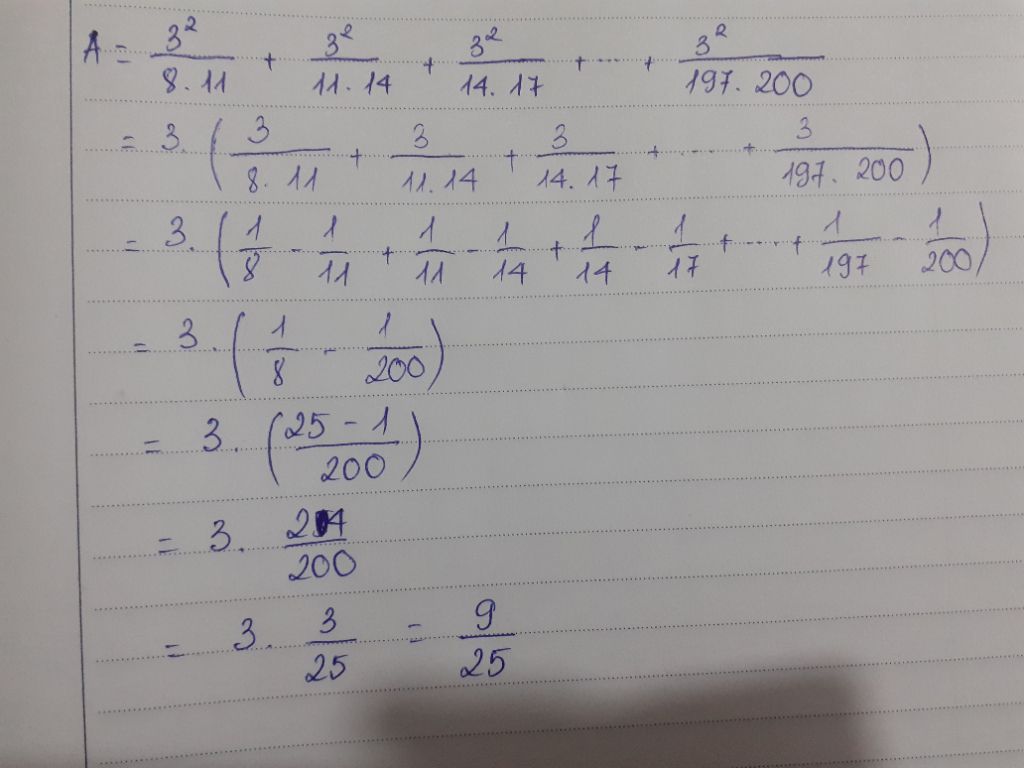 A = 3²/8.11 + 3²/11.14 + 3²/14.17 + ... + 3²/197.200
= 3.(3/8.11 + 3/11.14 + 3/14.17 + ... + 3/197.200)
= 3.(1/8 - 1/11 + 1/11 - 1/14 + 1/14 - 1/17 + ... + 1/197 - 1/200)
= 3.(1/8 - 1/200)
= 3.(25-1/200)
= 3. 24/200
= 3. 3/25 = 9/25